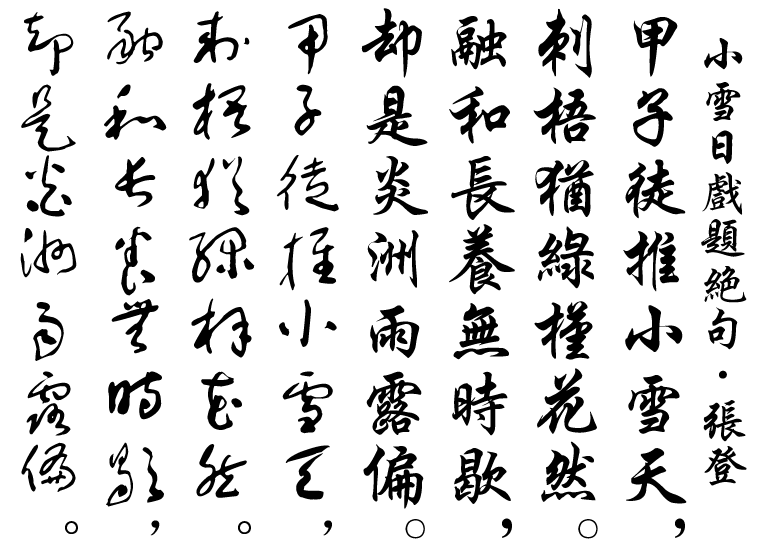 小雪日戲題絕句·張登
甲子徒推小雪天，
刺梧猶綠槿花然。
融和長養無時歇，
却是炎洲雨露偏。
甲子徒推小雪天，
刺梧猶綠槿花然。
融和長養無時歇，
却是炎洲雨露偏。